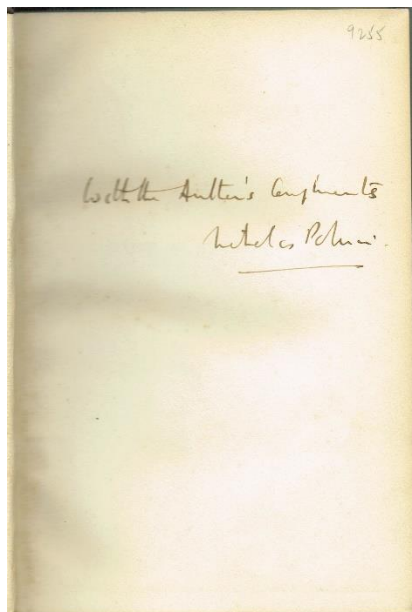 9255
With the Author's Compliments
Nicholas